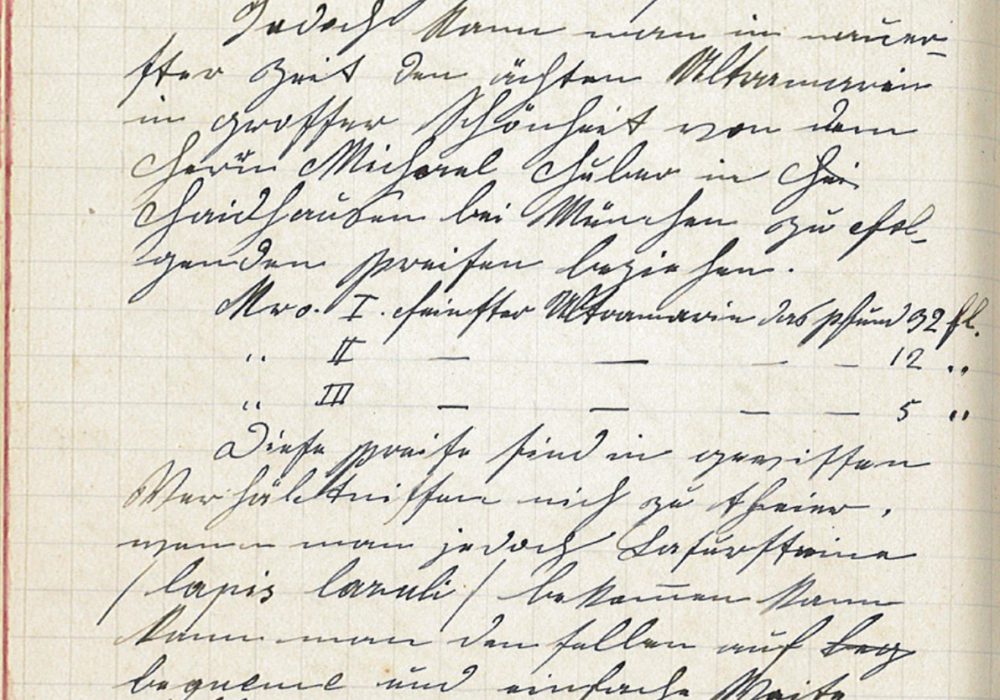 Jedoch kann man in neuer-
ster Zeit den ächten Ultramarin
in grosser Schönheit von dem
Herrn Michael Huber in Hei
Haidhausen bei München zu fol-
genden Preisen beziehen.
Nro. I. feinster Ultramarin das Pfund 32 fl.
" II — — — — 12 "
" III — — — — 5 "
Diese Preise sind in gewissen
Verhältnissen nich zu theier,
wenn man jedoch Lasursteine
/ lapis lazuli / bekom̄en kann
kann man den sellen auf beq
bequeme und einfache Weise